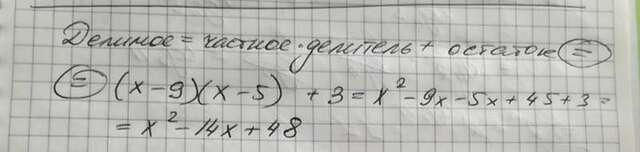 Делимое = частное · делитель + остаток =
= (x-9)(x-5) + 3 = x² - 9x - 5x + 45 + 3 =
= x² - 14x + 48